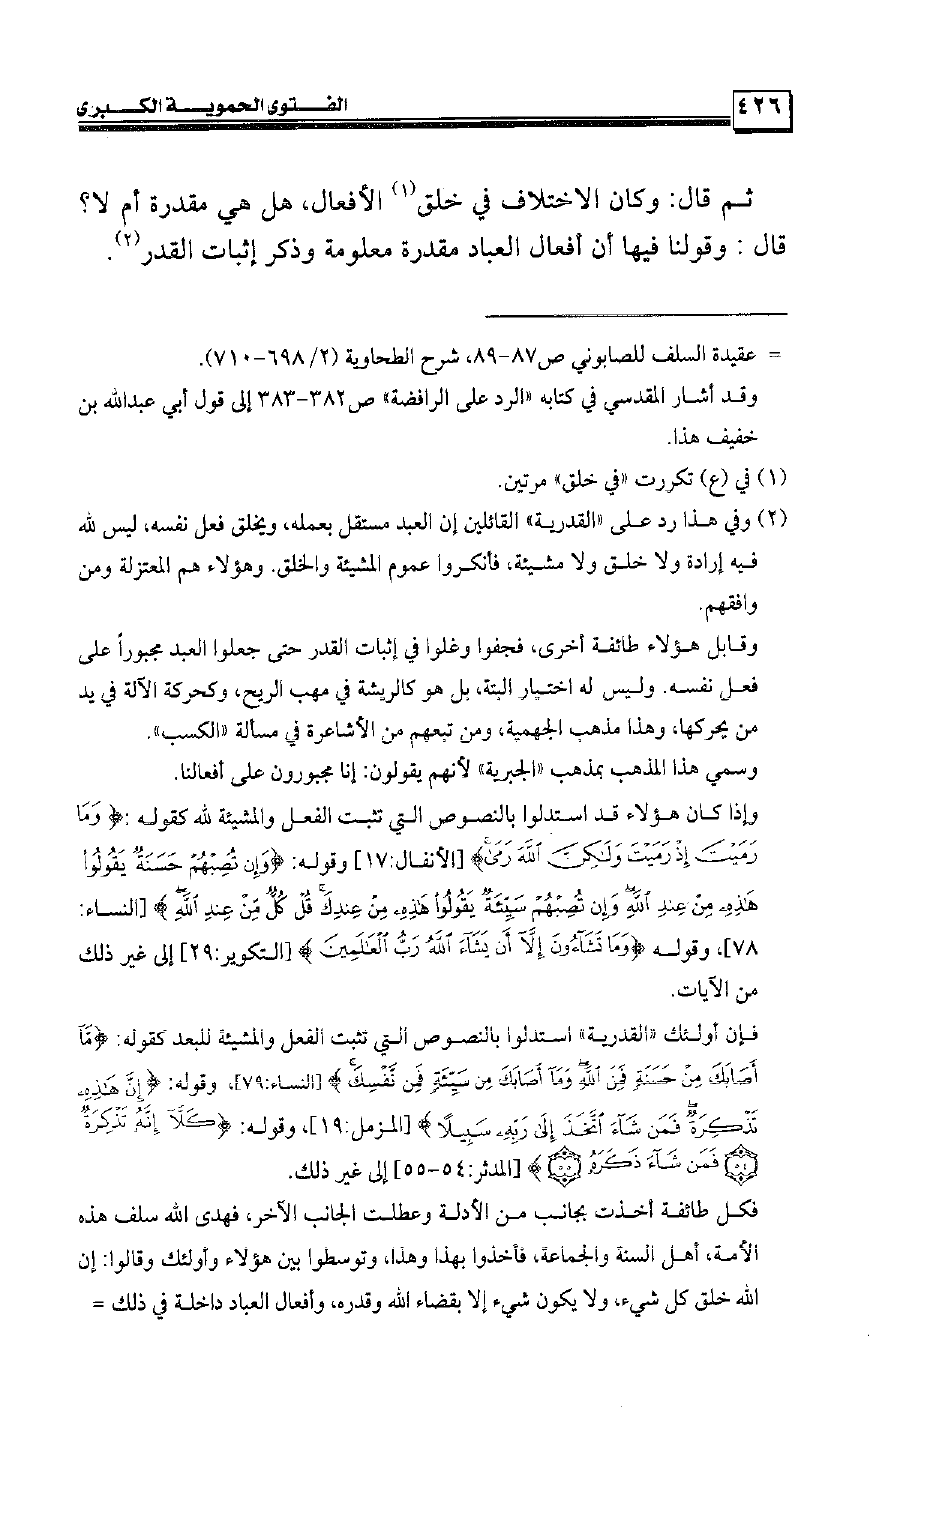 ٤٢٦ الفتوى الحموية الكبرى
ثم قال: وكان الاختلاف في خلق(١) الأفعال، هل هي مقدرة أم لا؟
قال : وقولنا فيها أن أفعال العباد مقدرة معلومة وذكر إثبات القدر(٢).
= عقيدة السلف للصابوني ص٨٧-٨٩، شرح الطحاوية (٢/ ٦٩٨-٧١٠).
وقد أشار المقدسي في كتابه «الرد على الرافضة» ص٣٨٢-٣٨٣ إلى قول أبي عبدالله بن
خفيف هذا.
(١) في (ع) تكررت «في خلق» مرتين.
(٢) وفي هذا رد على «القدرية» القائلين إن العبد مستقل بعمله، ويخلق فعل نفسه، ليس لله
فيه إرادة ولا خلق ولا مشيئة، فأنكروا عموم المشيئة والخلق. وهؤلاء هم المعتزلة ومن
وافقهم.
وقابل هؤلاء طائفة أخرى، فجفوا وغلوا في إثبات القدر حتى جعلوا العبد مجبوراً على
فعل نفسه. وليس له اختيار البتة، بل هو كالريشة في مهب الريح، وكحركة الآلة في يد
من يحركها، وهذا مذهب الجهمية، ومن تبعهم من الأشاعرة في مسألة «الكسب».
وسمي هذا المذهب بمذهب «الجبرية» لأنهم يقولون: إنا مجبورون على أفعالنا.
وإذا كان هؤلاء قد استدلوا بالنصوص التي تثبت الفعل والمشيئة لله كقوله :﴿ وَمَا
رَمَيْتَ إِذْ رَمَيْتَ وَلَٰكِنَّ ٱللَّهَ رَمَىٰ﴾ [الأنفال:١٧] وقوله: ﴿وَإِن تُصِبْهُمْ حَسَنَةٌ يَقُولُوا۟
هَٰذِهِۦ مِنْ عِندِ ٱللَّهِ وَإِن تُصِبْهُمْ سَيِّئَةٌ يَقُولُوا۟ هَٰذِهِۦ مِنْ عِندِكَ قُلْ كُلٌّ مِّنْ عِندِ ٱللَّهِ ﴾ [النساء:
٧٨]، وقوله ﴿وَمَا تَشَآءُونَ إِلَّآ أَن يَشَآءَ ٱللَّهُ رَبُّ ٱلْعَٰلَمِينَ ﴾ [التكوير:٢٩] إلى غير ذلك
من الآيات.
فإن أولئك «القدرية» استدلوا بالنصوص التي تثبت الفعل والمشيئة للبعد كقوله: ﴿مَّآ
أَصَابَكَ مِنْ حَسَنَةٍ فَمِنَ ٱللَّهِ وَمَآ أَصَابَكَ مِن سَيِّئَةٍ فَمِن نَّفْسِكَ ﴾ [النساء:٧٩]، وقوله: ﴿إِنَّ هَٰذِهِۦ
تَذْكِرَةٌ فَمَن شَآءَ ٱتَّخَذَ إِلَىٰ رَبِّهِۦ سَبِيلًا ﴾ [المزمل:١٩]، وقوله: ﴿كَلَّآ إِنَّهُۥ تَذْكِرَةٌ
٥٤ فَمَن شَآءَ ذَكَرَهُۥ ٥٥ ﴾ [المدثر:٥٤-٥٥] إلى غير ذلك.
فكل طائفة أخذت بجانب من الأدلة وعطلت الجانب الآخر، فهدى الله سلف هذه
الأمة، أهل السنة والجماعة، فأخذوا بهذا وهذا، وتوسطوا بين هؤلاء وأولئك وقالوا: إن
الله خلق كل شيء، ولا يكون شيء إلا بقضاء الله وقدره، وأفعال العباد داخلة في ذلك =